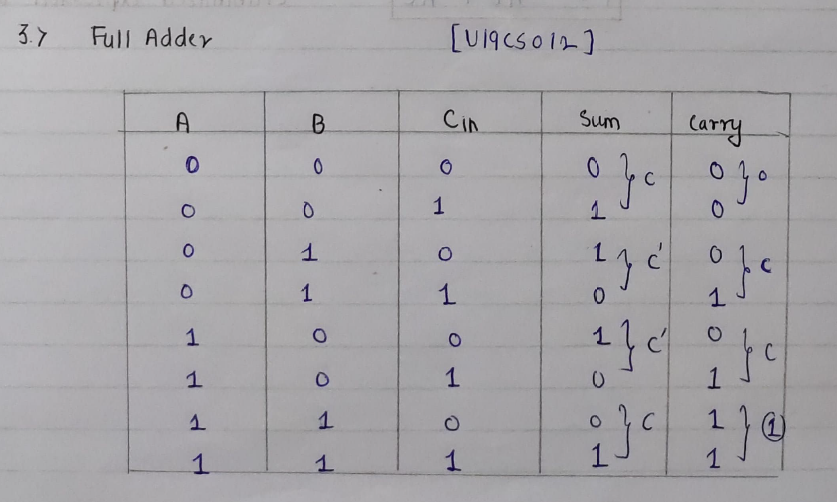 3.> Full Adder [U19CS012]
A B Cin Sum Carry
0 0 0 0 } C 0 } 0
0 0 1 1 0
0 1 0 1 } C' 0 } C
0 1 1 0 1
1 0 0 1 } C' 0 } C
1 0 1 0 1
1 1 0 0 } C 1 } 1
1 1 1 1 1